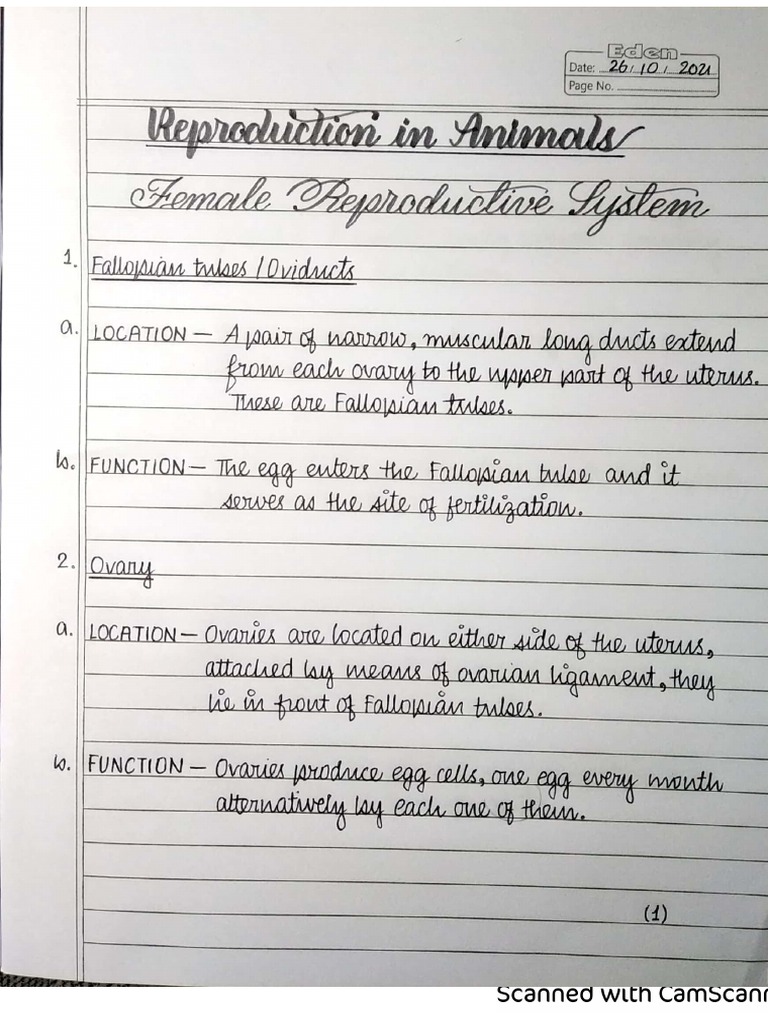 Eden
Date: 26/10/2021
Page No.
Reproduction in Animals
Female Reproductive System
1. Fallopian tubes / Oviducts
a. LOCATION — A pair of narrow, muscular long ducts extend
from each ovary to the upper part of the uterus.
These are Fallopian tubes.
b. FUNCTION — The egg enters the Fallopian tube and it
serves as the site of fertilization.
2. Ovary
a. LOCATION — Ovaries are located on either side of the uterus,
attached by means of ovarian ligament, they
lie in front of Fallopian tubes.
b. FUNCTION — Ovaries produce egg cells, one egg every month
alternatively by each one of them.
(1)
Scanned with CamScann